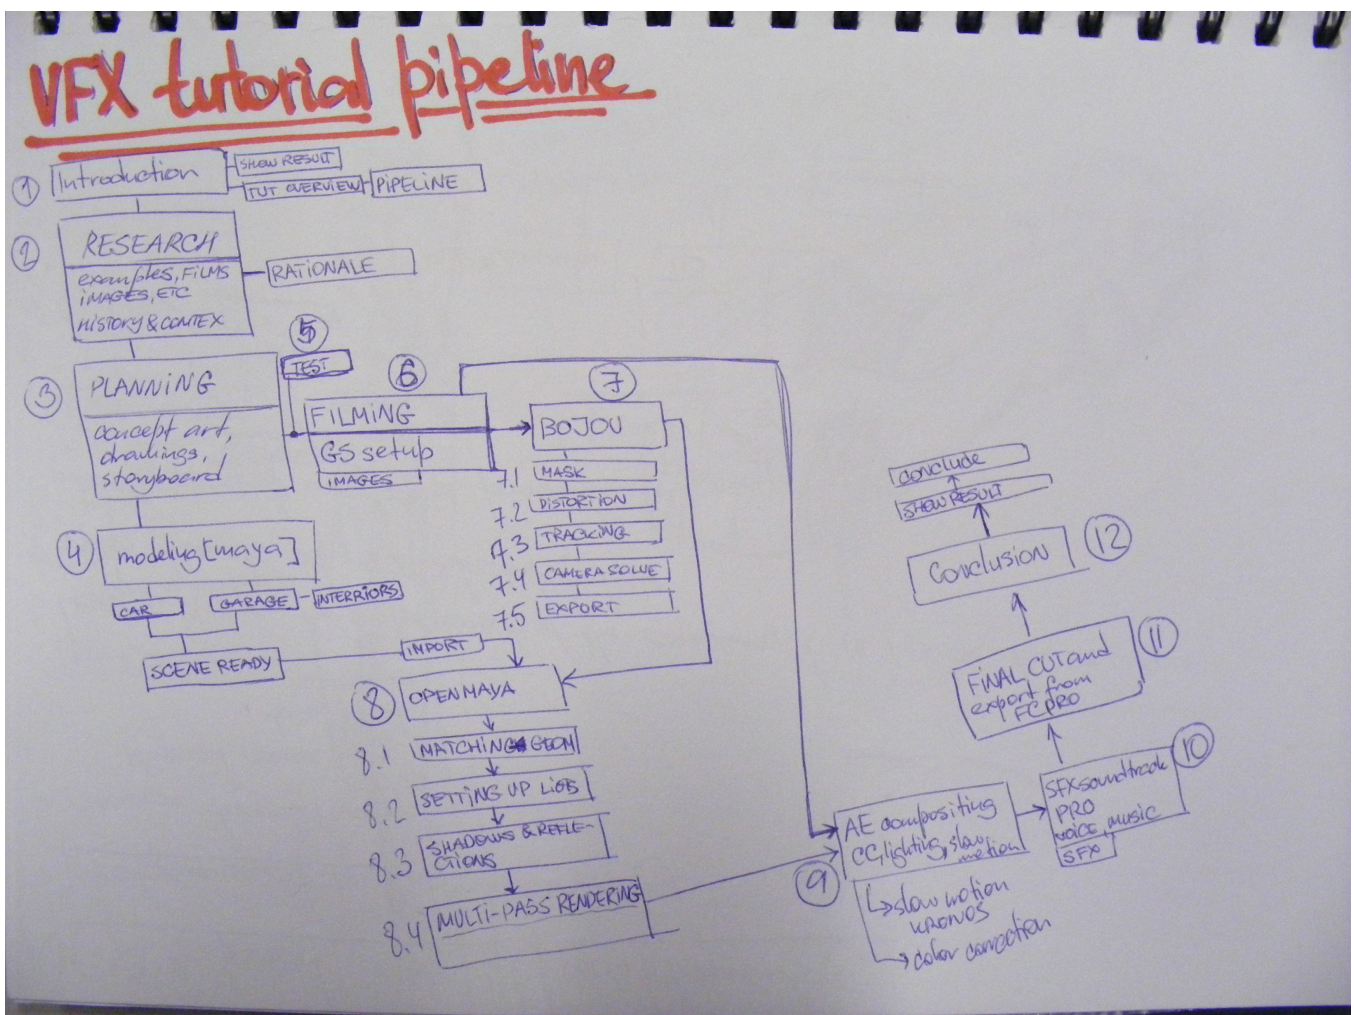 VFX tutorial pipeline
1
Introduction
SHOW RESULT
TUT OVERVIEW
PIPELINE
2
RESEARCH
examples, FILMS
IMAGES, ETC
HISTORY & CONTEX
RATIONALE
3
PLANNING
concept art,
drawings,
storyboard
5
TEST
6
FILMING
GS setup
IMAGES
7
BOJOU
7.1 MASK
7.2 DISTORTION
7.3 TRACKING
7.4 CAMERA SOLVE
7.5 EXPORT
4
modeling [maya]
CAR
GARAGE
INTERRIORS
SCENE READY
IMPORT
8
OPEN MAYA
8.1 MATCHING GEOM
8.2 SETTING UP
8.3 SHADOWS & REFLE-
CTIONS
8.4 MULTI-PASS RENDERING
9
AE compositing
CC, lighting, slow
motion
slow motion
KRONOS
color correction
10
SFX soundtrack
PRO
voice, music
SFX
11
FINAL CUT and
export from
FCPRO
12
Conclusion
SHOW RESULT
conclude